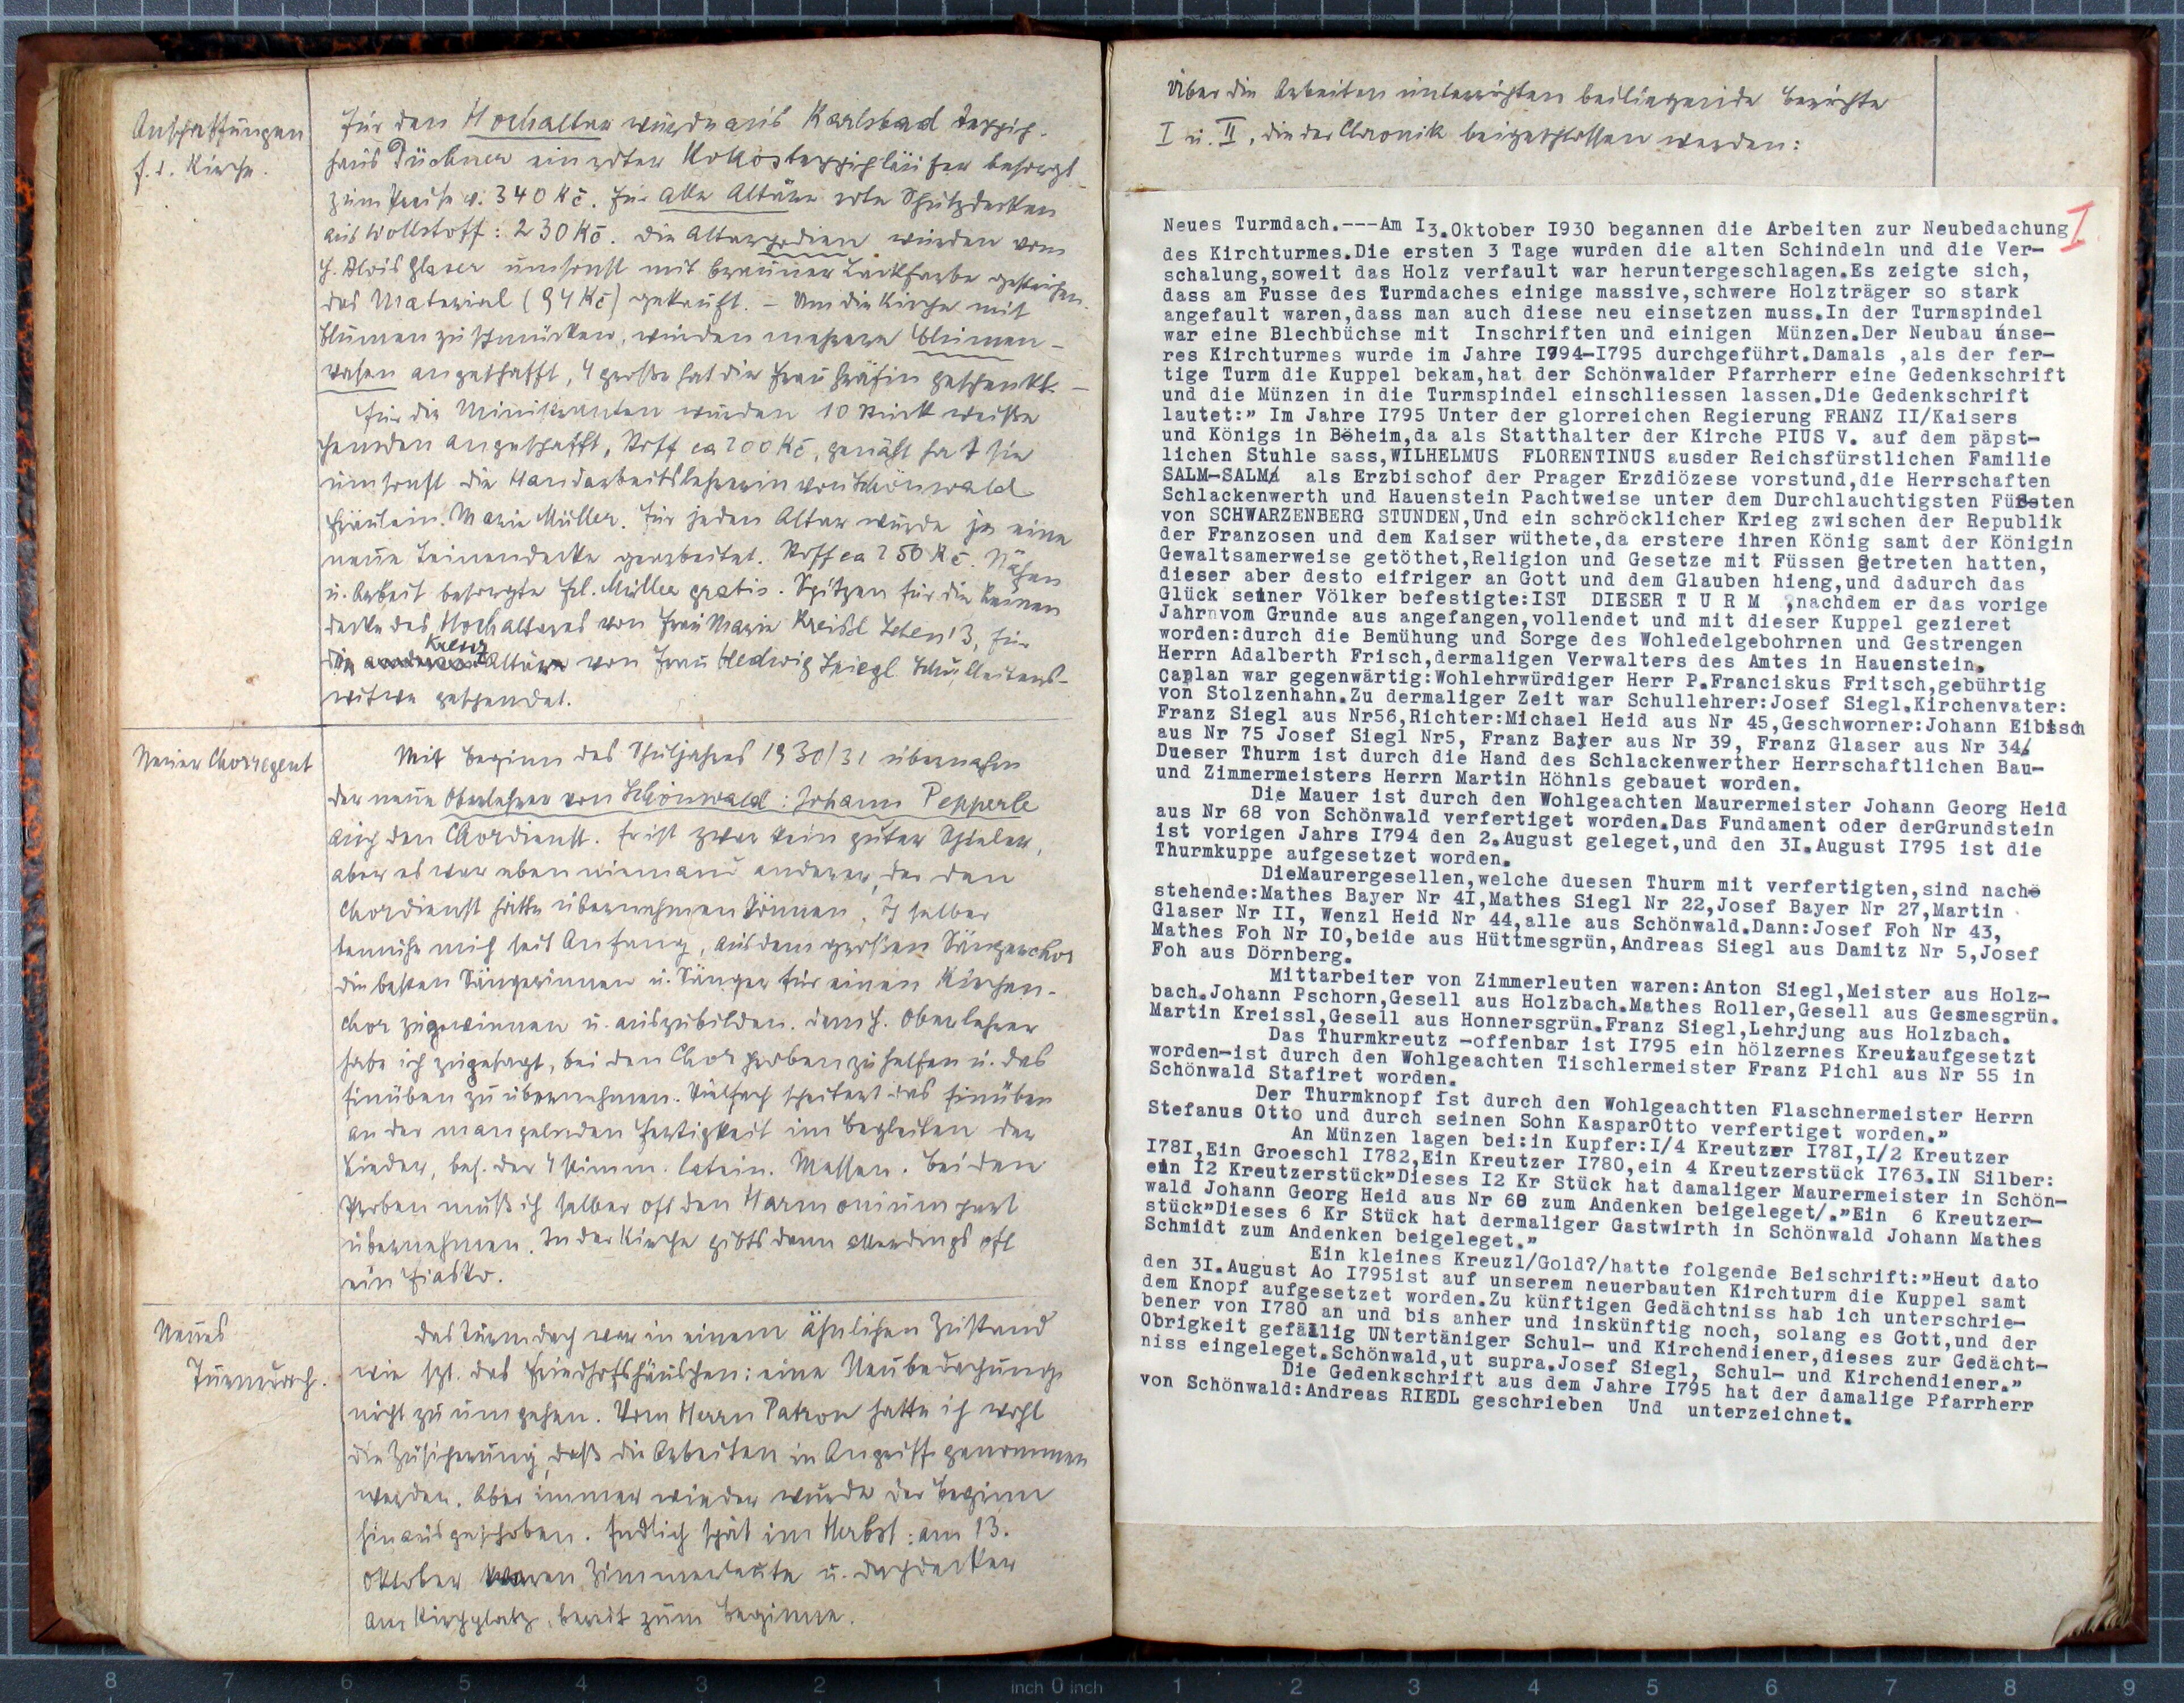 Anschaffungen
f. d. Kirche.
Für den Hochaltar wurde aus Karlsbad Teppich-
haus Düchner ein roter Kokosteppichläufer besorgt
zum Preise v. 340 Kč. Für alle Altäre rote Schutzdecken
aus Wollstoff: 230 Kč. Die Altarpodien wurden vom
H. Alois Glaser umsonst mit brauner Lackfarbe gestrichen
das Material (94 Kč) gekauft. – Um die Kirche mit
Blumen zu schmücken, wurden mehrere Blumen-
vasen angeschafft, 4 große hat die Frau Gräfin geschenkt. –
Für die Ministranten wurden 10 Stück weiße
Hemden angeschafft, Stoff ca 200 Kč, genäht hat sie
umsonst die Handarbeitslehrerin von Schönwald
Fräulein Marie Müller. Für jeden Altar wurde je eine
neue Leinendecke gearbeitet. Stoff ca 250 Kč. Nähen
u. Arbeit besorgte Frl. Müller gratis. Spitzen für die Leinen
decke des Hochaltares von Frau Marie Kreissl 13, für
die Kreuz Altäre von Frau Hedwig Siegl Schulleiters-
witwe gespendet.
Neuer Chorregent
Mit Beginn des Schuljahres 1930/31 übernahm
der neue Oberlehrer von Schönwald: Johann Pepperle
auch den Chordienst. Er ist zwar kein guter Spieler,
aber es war eben niemand anderer, der den
Chordienst hätte übernehmen können. Ich selber
bemühe mich seit Anfang, aus dem großen Sängerchor
die besten Sängerinnen u. Sänger für einen Kirchen-
chor zu gewinnen u. auszubilden. Dem H. Oberlehrer
habe ich zugesagt, bei den Chorproben zu helfen u. das
Einüben zu übernehmen. Vielfach scheitert das Einüben
an der mangelnden Fertigkeit im Begleiten der
Lieder, bes. der 4 stimm. latein. Messen. Bei den
Proben muß ich selber oft den Harmoniumpart
übernehmen. In der Kirche gibts dann allerdings oft
ein Fiasko.
Neues
Turmdach.
Das Turmdach war in einem ähnlichen Zustand
wie das Friedhofshäuschen: eine Neubedachung
nicht zu umgehen. Vom Herrn Patron hatte ich wohl
die Zusicherung, daß die Arbeiten in Angriff genommen
werden. Aber immer wieder wurde der Beginn
hinausgeschoben. Endlich spät im Herbst: am 13.
Oktober waren Zimmerleute u. Dachdecker
am Kirchplatz, bereit zum Beginne.
Über die Arbeiten unterrichten beiliegende Berichte
I u. II, die der Chronik beigeschlossen werden:
I
Neues Turmdach.---Am I3.Oktober I930 begannen die Arbeiten zur Neubedachung
des Kirchturmes.Die ersten 3 Tage wurden die alten Schindeln und die Ver-
schalung,soweit das Holz verfault war heruntergeschlagen.Es zeigte sich,
dass am Fusse des Turmdaches einige massive,schwere Holzträger so stark
angefault waren,dass man auch diese neu einsetzen muss.In der Turmspindel
war eine Blechbüchse mit Inschriften und einigen Münzen.Der Neubau unse-
res Kirchturmes wurde im Jahre I794-I795 durchgeführt.Damals ,als der fer-
tige Turm die Kuppel bekam,hat der Schönwalder Pfarrherr eine Gedenkschrift
und die Münzen in die Turmspindel einschliessen lassen.Die Gedenkschrift
lautet:" Im Jahre I795 Unter der glorreichen Regierung FRANZ II/Kaisers
und Königs in Böheim,da als Statthalter der Kirche PIUS V. auf dem päpst-
lichen Stuhle sass,WILHELMUS FLORENTINUS ausder Reichsfürstlichen Familie
SALM-SALM/ als Erzbischof der Prager Erzdiözese vorstund,die Herrschaften
Schlackenwerth und Hauenstein Pachtweise unter dem Durchlauchtigsten Fürsten
von SCHWARZENBERG STUNDEN,Und ein schröcklicher Krieg zwischen der Republik
der Franzosen und dem Kaiser wüthete,da erstere ihren König samt der Königin
Gewaltsamerweise getöthet,Religion und Gesetze mit Füssen getreten hatten,
dieser aber desto eifriger an Gott und dem Glauben hieng,und dadurch das
Glück seiner Völker befestigte:IST DIESER T U R M ,nachdem er das vorige
Jahrnvom Grunde aus angefangen,vollendet und mit dieser Kuppel gezieret
worden:durch die Bemühung und Sorge des Wohledelgebohrnen und Gestrengen
Herrn Adalberth Frisch,dermaligen Verwalters des Amtes in Hauenstein.
Caplan war gegenwärtig:Wohlehrwürdiger Herr P.Franciskus Fritsch,gebührtig
von Stolzenhahn.Zu dermaliger Zeit war Schullehrer:Josef Siegl.Kirchenvater:
Franz Siegl aus Nr56,Richter:Michael Heid aus Nr 45,Geschworner:Johann Eibisch
aus Nr 75 Josef Siegl Nr5, Franz Bayer aus Nr 39, Franz Glaser aus Nr 34/
Dueser Thurm ist durch die Hand des Schlackenwerther Herrschaftlichen Bau-
und Zimmermeisters Herrn Martin Höhnls gebauet worden.
Die Mauer ist durch den Wohlgeachten Maurermeister Johann Georg Heid
aus Nr 68 von Schönwald verfertiget worden.Das Fundament oder derGrundstein
ist vorigen Jahrs I794 den 2.August geleget,und den 3I.August I795 ist die
Thurmkuppe aufgesetzet worden.
DieMaurergesellen,welche duesen Thurm mit verfertigten,sind nach-
stehende:Mathes Bayer Nr 4I,Mathes Siegl Nr 22,Josef Bayer Nr 27,Martin
Glaser Nr II, Wenzl Heid Nr 44,alle aus Schönwald.Dann:Josef Foh Nr 43,
Mathes Foh Nr IO,beide aus Hüttmesgrün,Andreas Siegl aus Damitz Nr 5,Josef
Foh aus Dörnberg.
Mittarbeiter von Zimmerleuten waren:Anton Siegl,Meister aus Holz-
bach.Johann Pschorn,Gesell aus Holzbach.Mathes Roller,Gesell aus Gesmesgrün.
Martin Kreissl,Gesell aus Honnersgrün.Franz Siegl,Lehrjung aus Holzbach.
Das Thurmkreutz -offenbar ist I795 ein hölzernes Kreuzaufgesetzt
worden-ist durch den Wohlgeachten Tischlermeister Franz Pichl aus Nr 55 in
Schönwald Stafiret worden.
Der Thurmknopf ist durch den Wohlgeachtten Flaschnermeister Herrn
Stefanus Otto und durch seinen Sohn KasparOtto verfertiget worden."
An Münzen lagen bei:in Kupfer:I/4 Kreutzer I78I,I/2 Kreutzer
I78I,Ein Groeschl I782,Ein Kreutzer I780,ein 4 Kreutzerstück I763.IN Silber:
ein I2 Kreutzerstück"Dieses I2 Kr Stück hat damaliger Maurermeister in Schön-
wald Johann Georg Heid aus Nr 68 zum Andenken beigeleget/."Ein 6 Kreutzer-
stück"Dieses 6 Kr Stück hat dermaliger Gastwirth in Schönwald Johann Mathes
Schmidt zum Andenken beigeleget."
Ein kleines Kreuzl/Gold?/hatte folgende Beischrift:"Heut dato
den 3I.August Ao I795ist auf unserem neuerbauten Kirchturm die Kuppel samt
dem Knopf aufgesetzet worden.Zu künftigen Gedächtniss hab ich unterschrie-
bener von I780 an und bis anher und inskünftig noch, solang es Gott,und der
Obrigkeit gefällig UNtertäniger Schul- und Kirchendiener,dieses zur Gedächt-
niss eingeleget.Schönwald,ut supra.Josef Siegl, Schul- und Kirchendiener."
Die Gedenkschrift aus dem Jahre I795 hat der damalige Pfarrherr
von Schönwald:Andreas RIEDL geschrieben Und unterzeichnet.
8 7 6 5 4 3 2 1 inch 0 inch 1 2 3 4 5 6 7 8 9